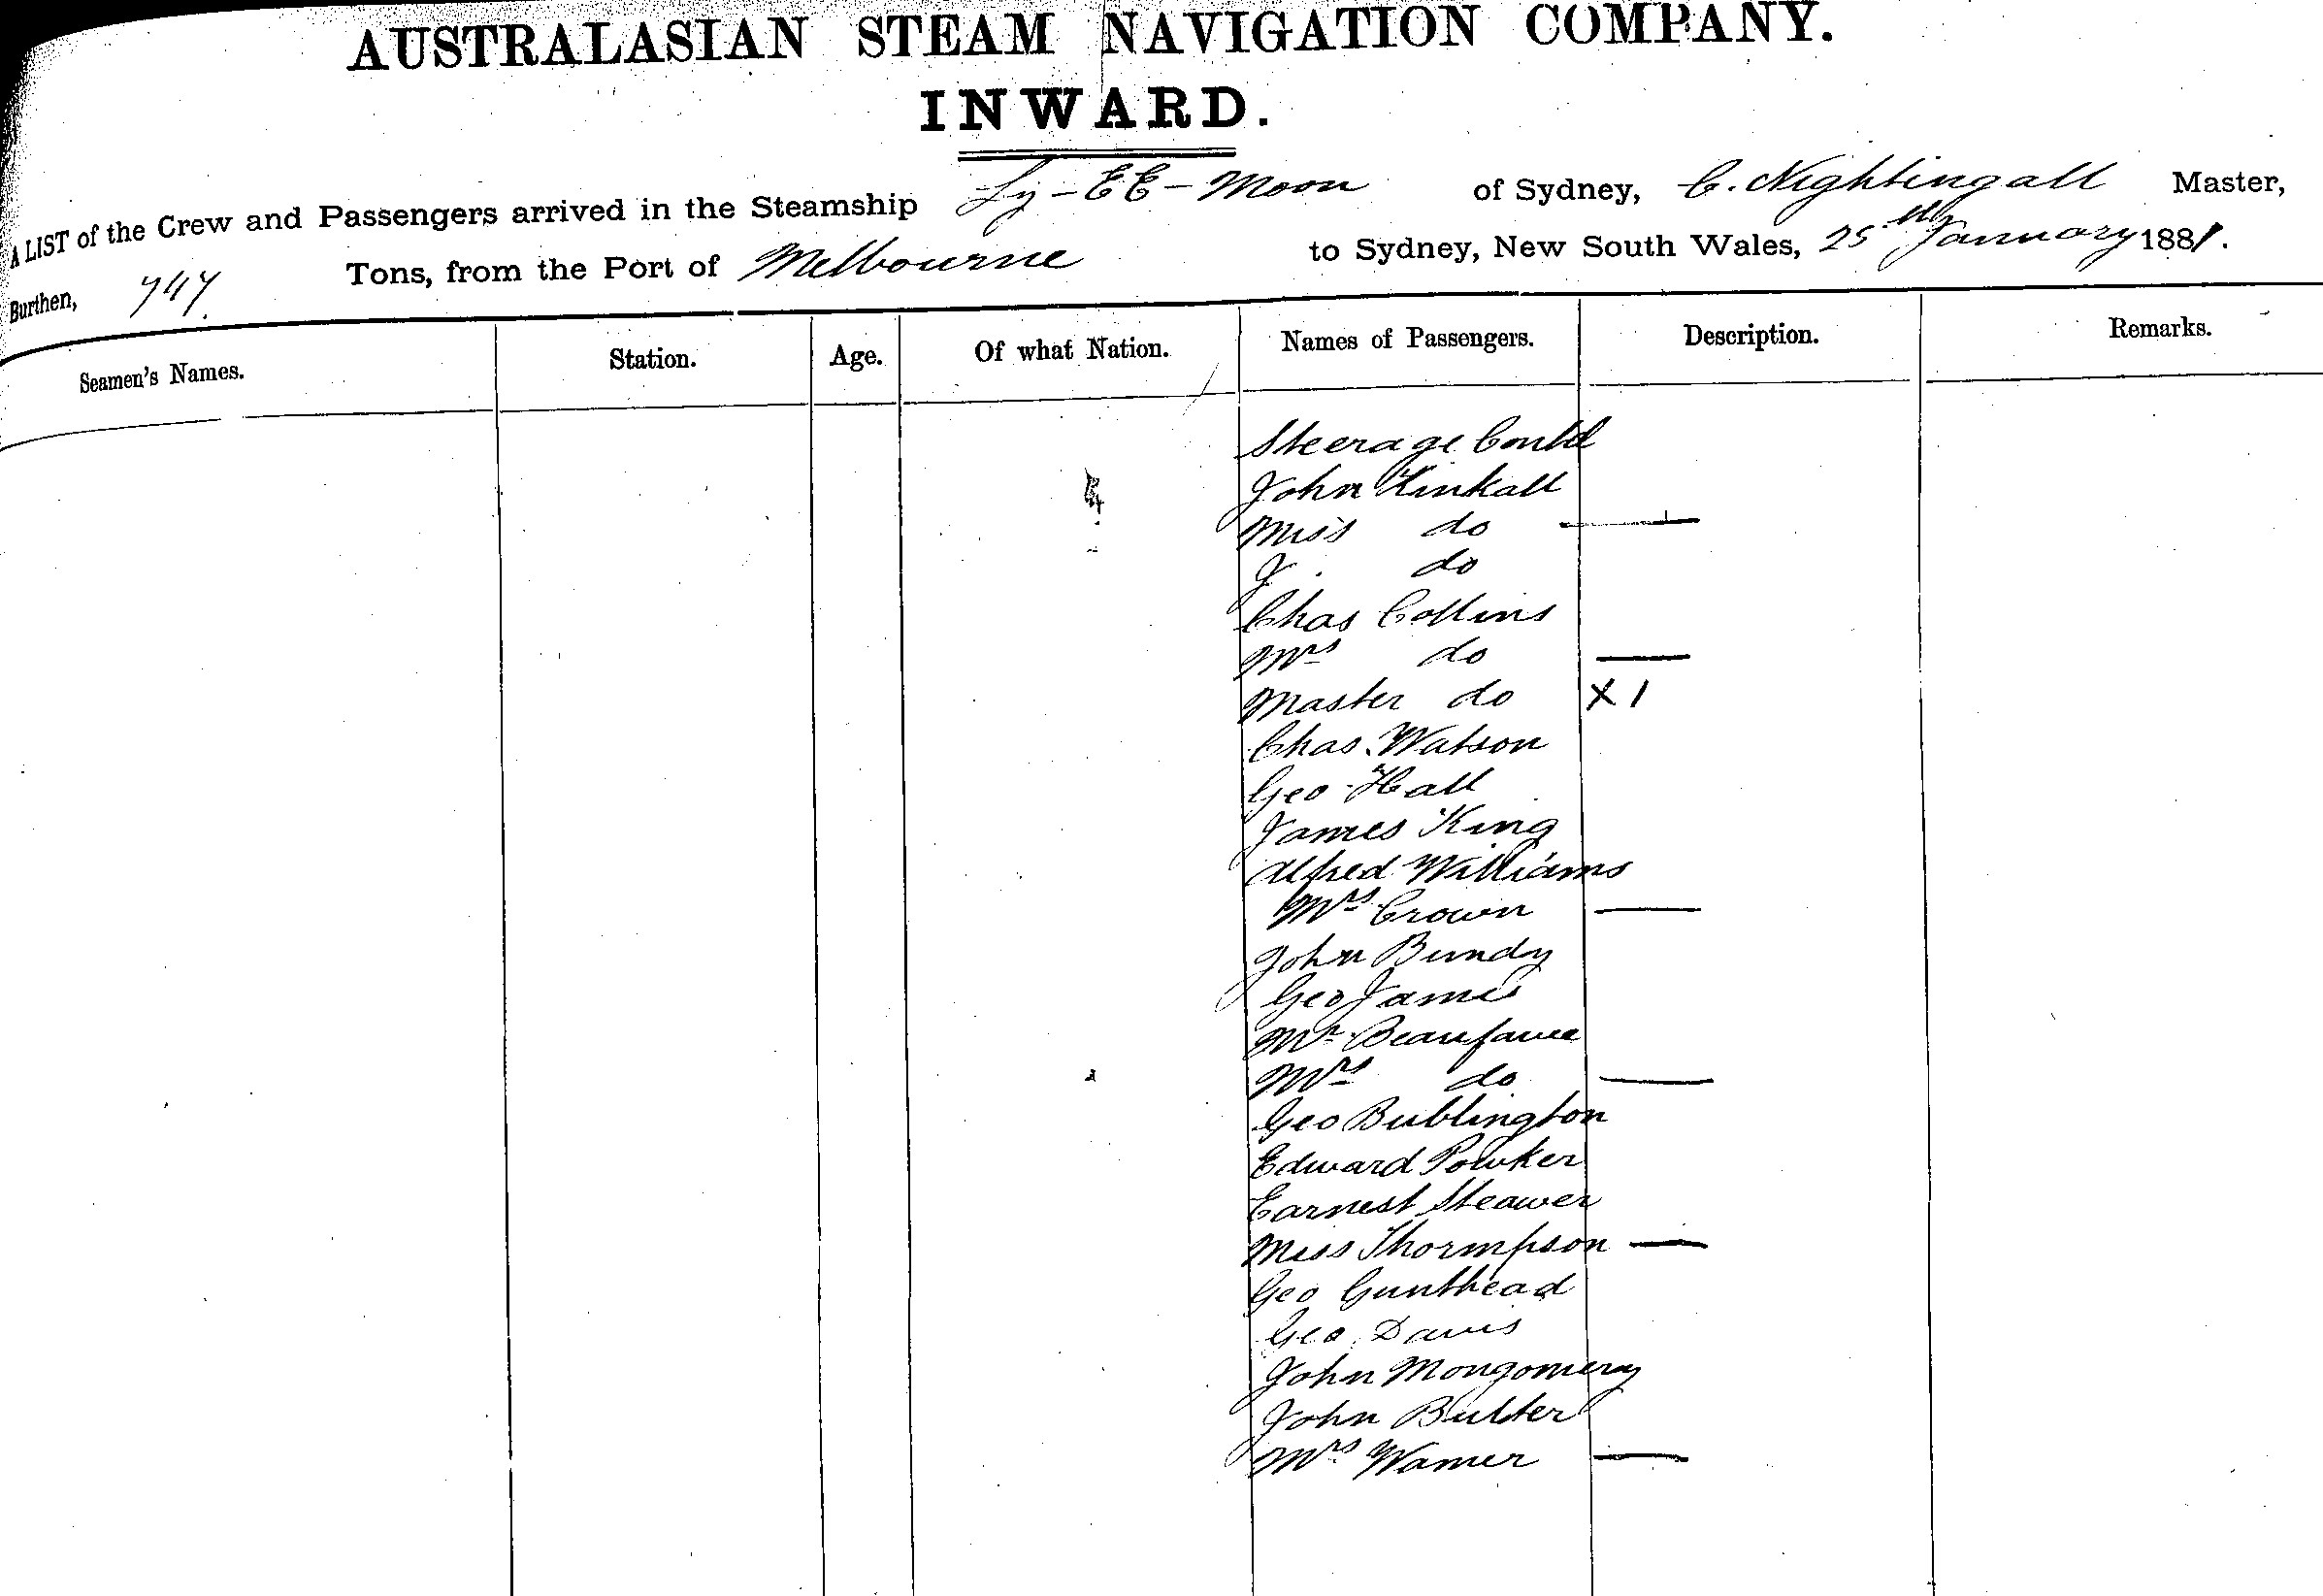 AUSTRALASIAN STEAM NAVIGATION COMPANY.
INWARD.
A LIST of the Crew and Passengers arrived in the Steamship Ly-EE-Moon of Sydney, C. Nightingall Master,
Burthen, 747. Tons, from the Port of Melbourne to Sydney, New South Wales, 25th January 1881.
Seamen's Names. Station. Age. Of what Nation. Names of Passengers. Description. Remarks.
Steerage Contd
John Kinkall
Miss do —
J. do
Chas Collins
Mrs do —
Master do X 1
Chas Watson
Geo Hall
James King
Alfred Williams
Mrs Crown —
John Bundy
Geo James
Mr
Mrs do —
Geo Bublington
Edward Powker
Earnest Steawer
Miss Thormpson —
Geo Gunthead
Geo Davis
John Mongomery
John Butter
Mrs Warner —